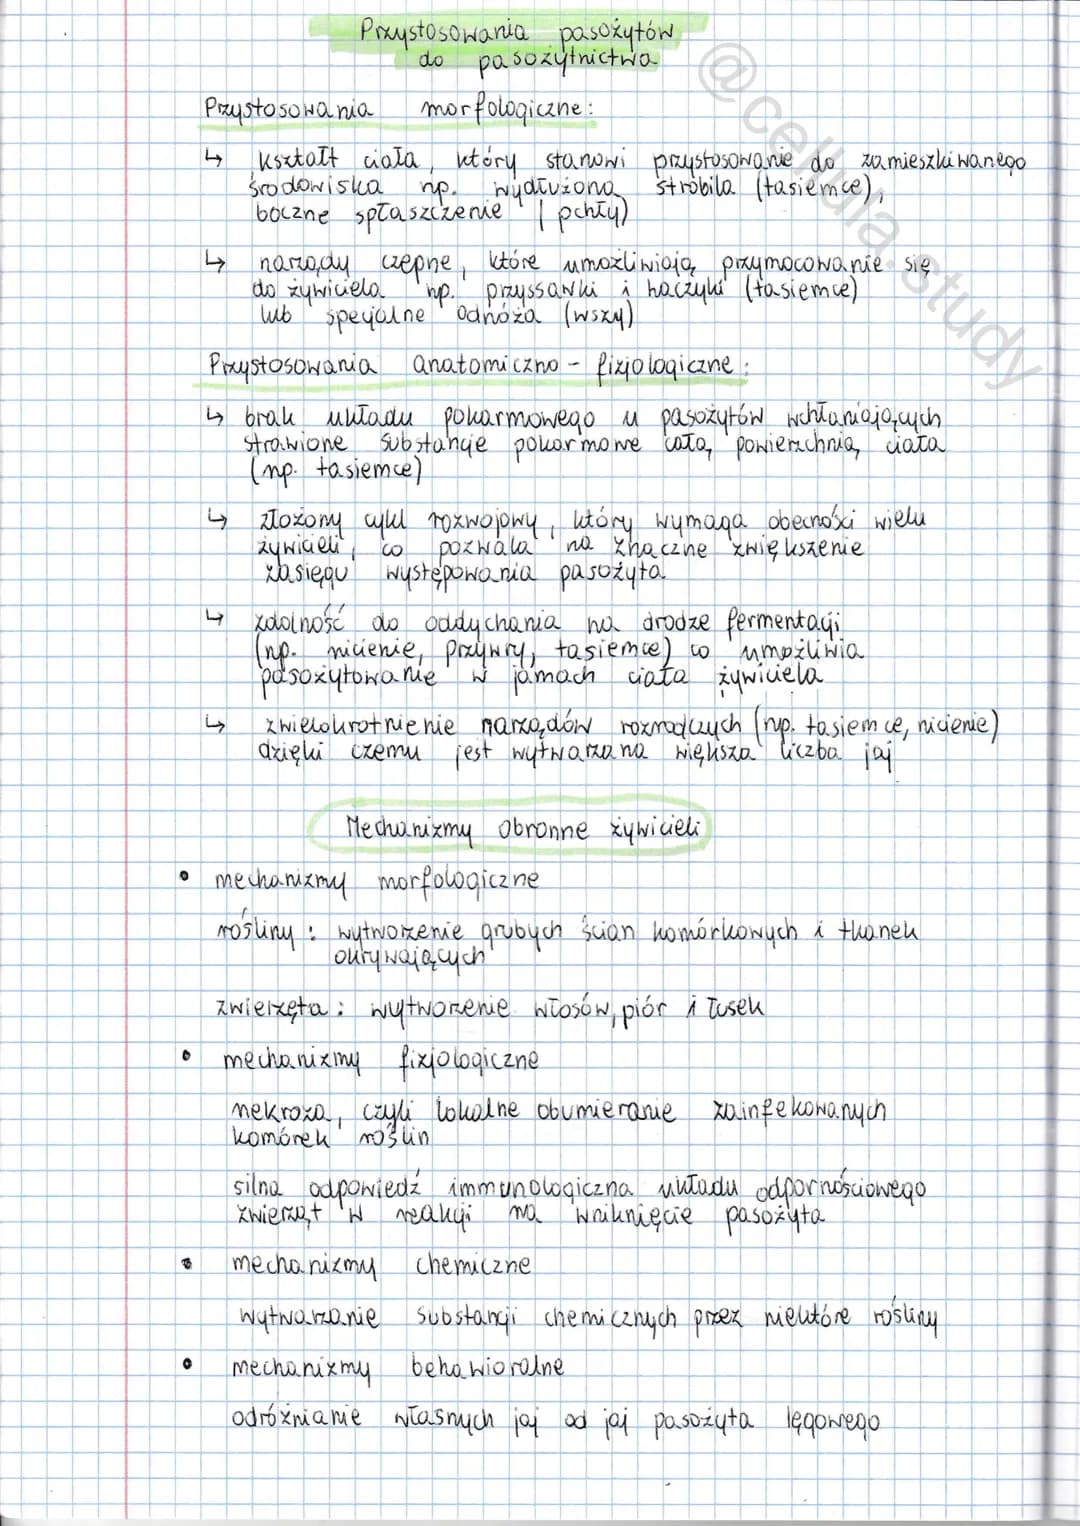 Przystosowania pasożytów
do pasożytnictwa
@cellula.study
Przystosowania morfologiczne:
↳ kształt ciała, który stanowi przystosowanie do zamieszkiwanego
środowiska np. wydłużona strobila (tasiemce),
boczne spłaszczenie (pchły)
↳ narządy czepne, które umożliwiają przymocowanie się
do żywiciela np. przyssawki i haczyki (tasiemce)
lub specjalne odnóża (wszy)
Przystosowania anatomiczno - fizjologiczne:
↳ brak układu pokarmowego u pasożytów wchłaniających
strawione substancje pokarmowe całą powierzchnią ciała
(np. tasiemce)
↳ złożony cykl rozwojowy, który wymaga obecności wielu
żywicieli, co pozwala na znaczne zwiększenie
zasięgu występowania pasożyta
↳ zdolność do oddychania na drodze fermentacji
(np. nicienie, przywry, tasiemce) co umożliwia
pasożytowanie w jamach ciała żywiciela
↳ zwielokrotnienie narządów rozrodczych (np. tasiemce, nicienie)
dzięki czemu jest wytwarzana większa liczba jaj
Mechanizmy obronne żywicieli
• mechanizmy morfologiczne
rośliny: wytworzenie grubych ścian komórkowych i tkanek
okrywających
zwierzęta: wytworzenie włosów, piór i łusek
• mechanizmy fizjologiczne
nekroza, czyli lokalne obumieranie zainfekowanych
komórek roślin
silna odpowiedź immunologiczna układu odpornościowego
zwierząt w reakcji na wniknięcie pasożyta
• mechanizmy chemiczne
wytwarzanie substancji chemicznych przez niektóre rośliny
• mechanizmy behawioralne
odróżnianie własnych jaj od jaj pasożyta lęgowego